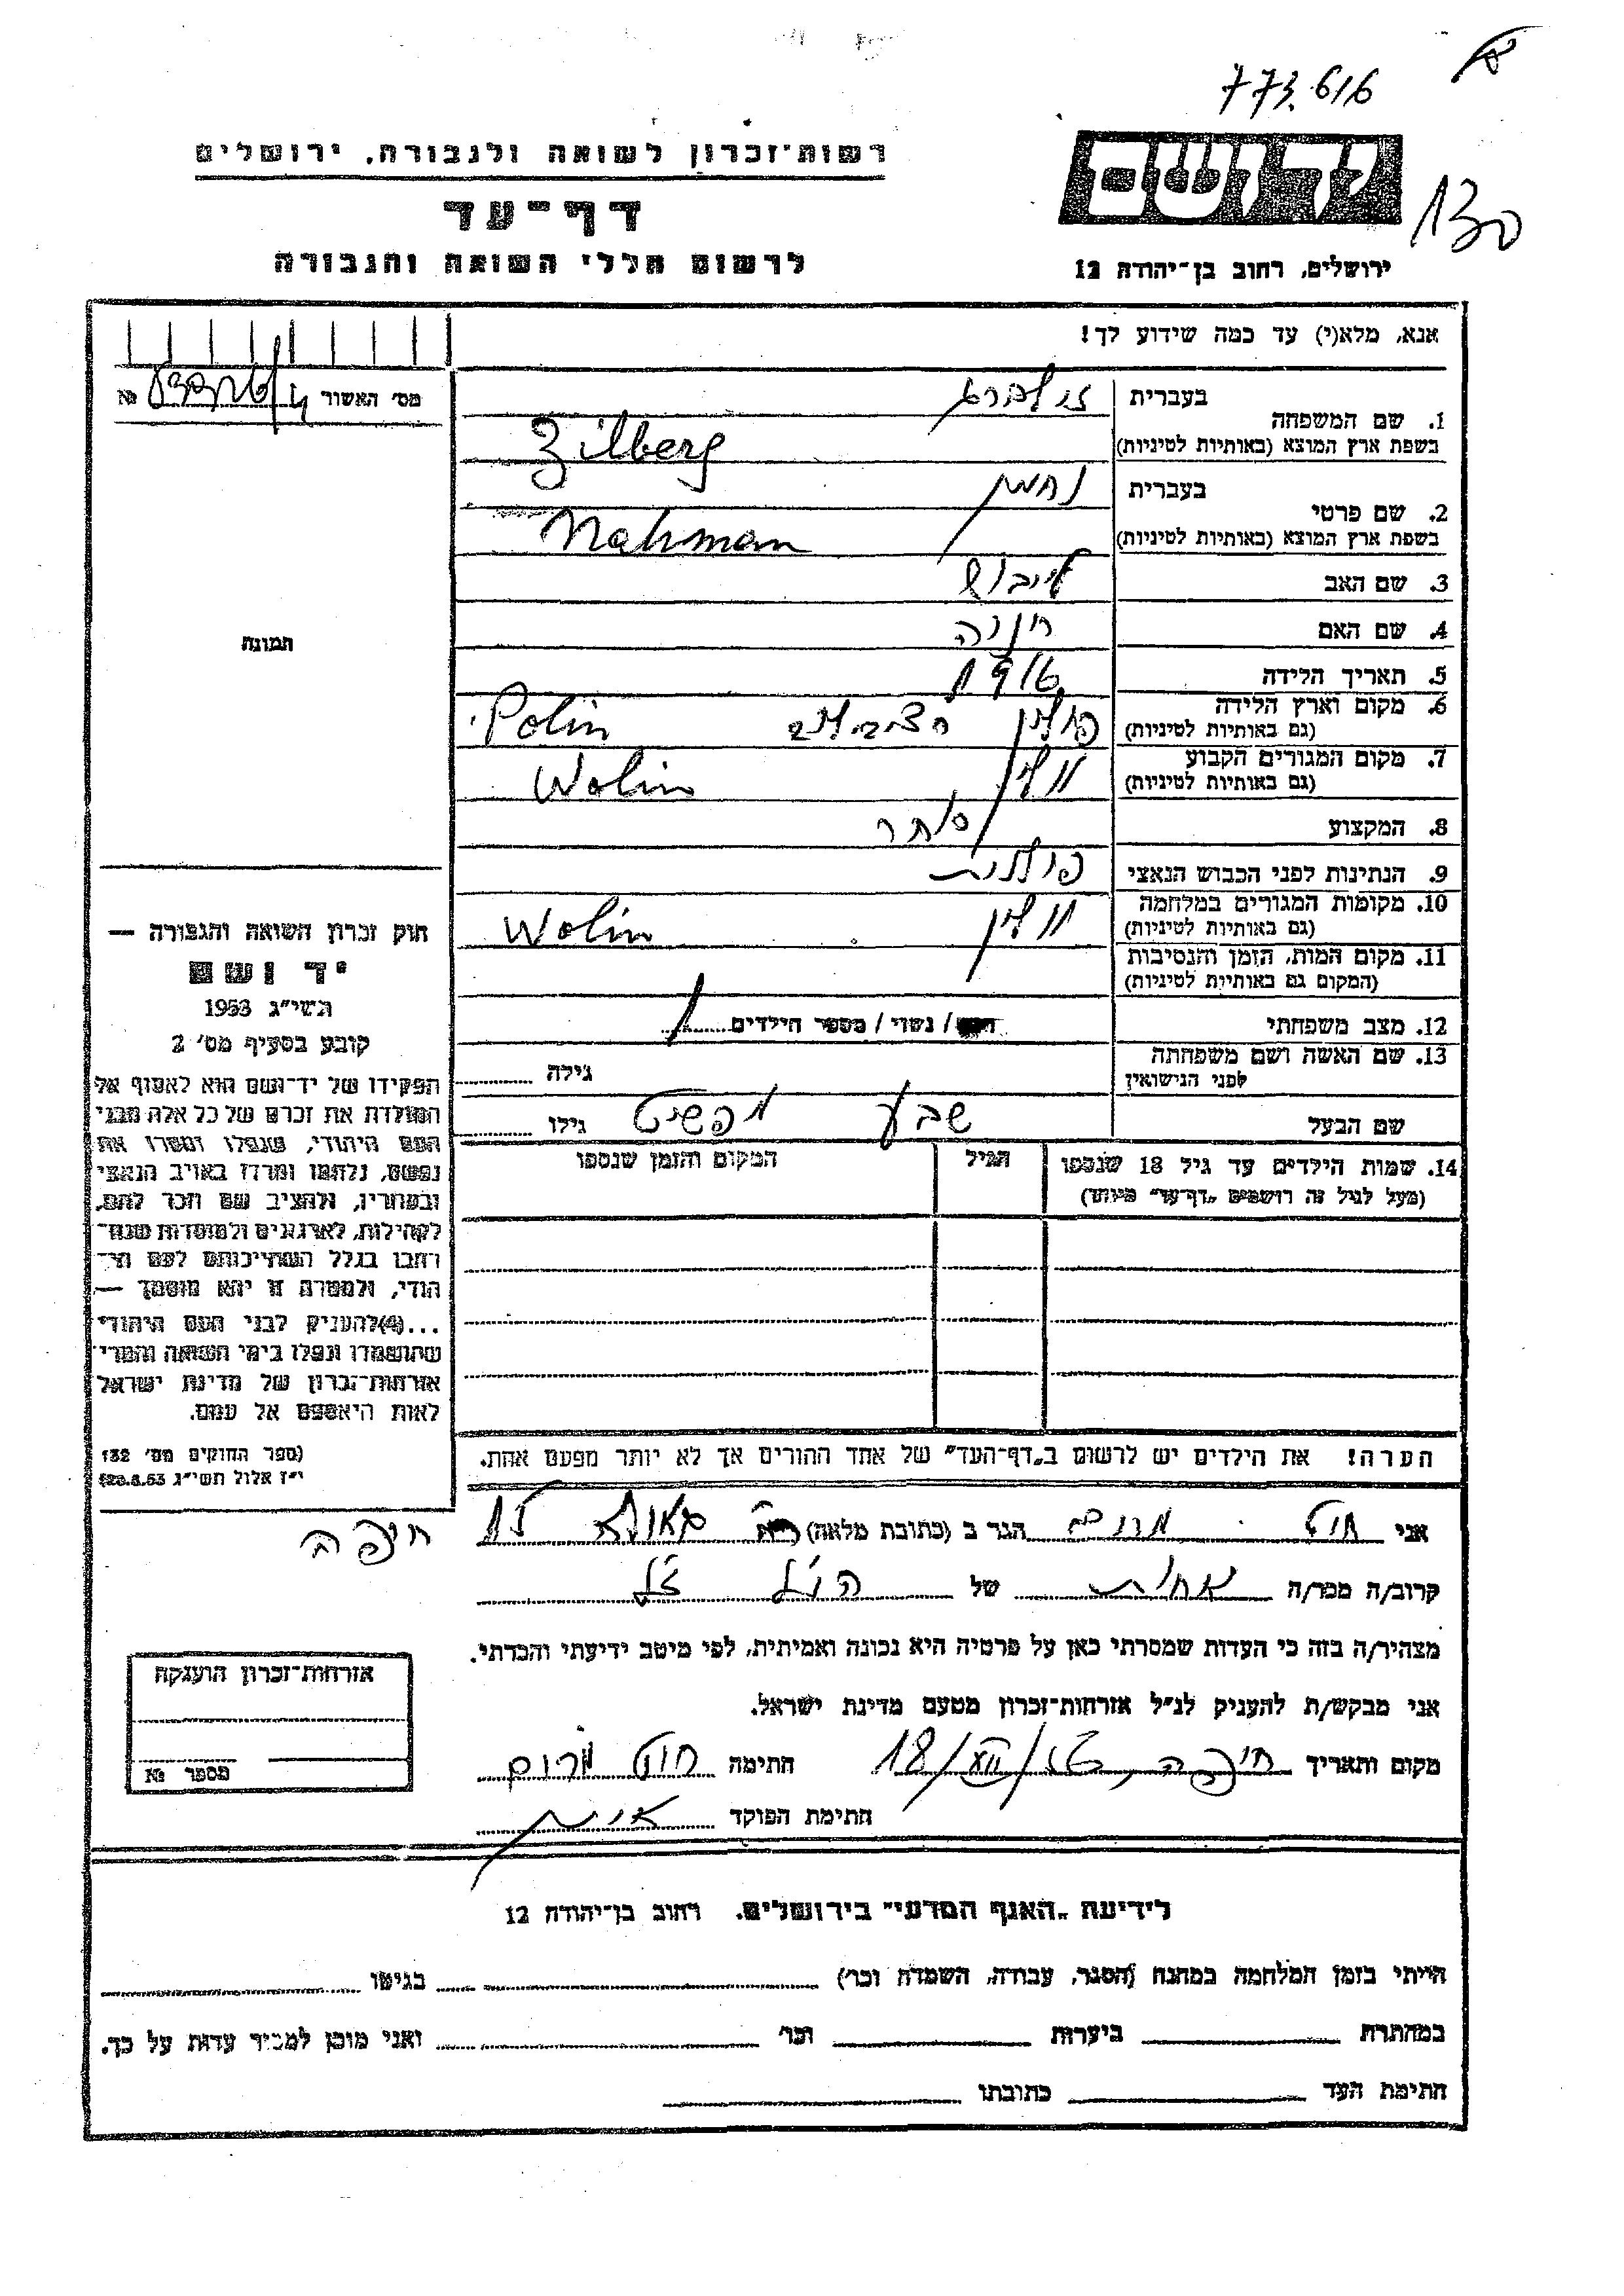 773.616
רשות־זכרון לשואה ולגבורה, ירושלים
יד ושם
130
דף־עד
לרשום חללי השואה והגבורה
ירושלים, רחוב בן־יהודה 12
אנא, מלא(י) עד כמה שידוע לך!
מס׳ האשור №
1. שם המשפחה בעברית זילברג
בשפת ארץ המוצא (באותיות לטיניות) Zilberg
2. שם פרטי בעברית נחמן
בשפת ארץ המוצא (באותיות לטיניות) Nahman
3. שם האב לייבוש
4. שם האם חנה
5. תאריך הלידה
6. מקום וארץ הלידה (גם באותיות לטיניות) פולין Polin
7. מקום המגורים הקבוע (גם באותיות לטיניות) וולין Wolin
8. המקצוע סוחר
9. הנתינות לפני הכבוש הנאצי פולנית
10. מקומות המגורים במלחמה (גם באותיות לטיניות) וולין Wolin
11. מקום המות, הזמן והנסיבות (המקום גם באותיות לטיניות)
12. מצב משפחתי / נשוי / מספר הילדים 1
13. שם האשה ושם משפחתה לפני הנישואין גילה
שם הבעל שבע גילו
14. שמות הילדים עד גיל 18 שנספו הגיל המקום והזמן שנספו
(מעל לגיל זה רושמים „דף־עד” מיוחד)
הערה! את הילדים יש לרשום ב„דף־העד” של אחד ההורים אך לא יותר מפעם אחת.
תמונה
חוק זכרון השואה והגבורה —
יד ושם
תשי״ג 1953
קובע בסעיף מס׳ 2
תפקידו של יד־ושם הוא לאסוף אל
המולדת את זכרם של כל אלה מבני
העם היהודי, שנפלו ומסרו את
נפשם, נלחמו ומרדו באויב הנאצי
ובעוזריו, ולהציב שם וזכר להם,
לקהילות, לארגונים ולמוסדות שנח־
רבו בגלל השתייכותם לעם הי־
הודי, ולמטרה זו יהא מוסמך —
...(4) להעניק לבני העם היהודי
שהושמדו ונפלו בימי השואה והמרי
אזרחות־זכרון של מדינת ישראל
לאות היאספם אל עמם.
(ספר החוקים מס׳ 132
י״ז אלול תשי״ג 28.8.53)
אני חוט מרים הגר ב (כתובת מלאה)
חיפה
קרוב/ה מכר/ה אחות של הנ״ל ז״ל
מצהיר/ה בזה כי העדות שמסרתי כאן על פרטיה היא נכונה ואמיתית, לפי מיטב ידיעתי והכרתי.
אני מבקש/ת להעניק לנ״ל אזרחות־זכרון מטעם מדינת ישראל.
מקום ותאריך חיפה, חתימה חוט מרים
חתימת הפוקד
אזרחות־זכרון הוענקה
מספר №
לידיעת „האגף המדעי” בירושלים. רחוב בן־יהודה 12
הייתי בזמן המלחמה במחנה (הסגר, עבודה, השמדה וכו׳) בגיטו
במחתרת ביערות וכו׳ ואני מוכן למסור עדות על כך.
חתימת העד כתובתו